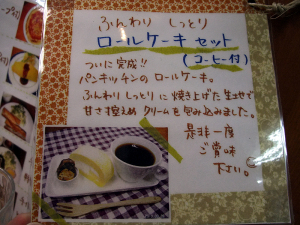 ふんわり しっとり
ロールケーキセット
(コーヒー付)
ついに完成!!
パンキッチンの ロールケーキ。
ふんわり しっとりに 焼き上げた生地で
甘さ控えめ クリームを 包み込みました。
是非一度
ご賞味
下さい。